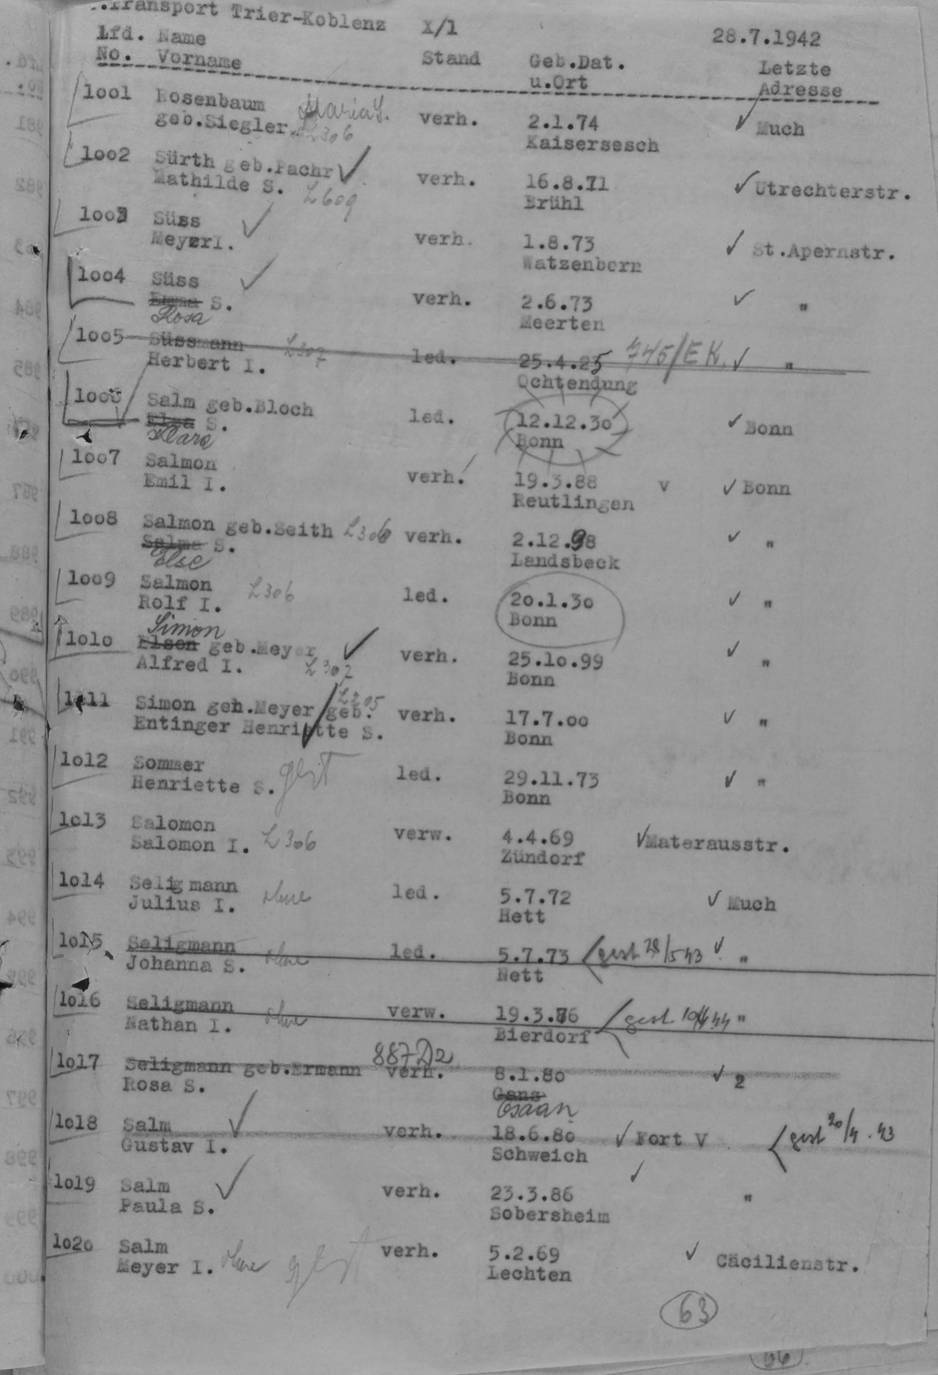 Transport Trier-Koblenz X/1 28.7.1942
Lfd. Name Stand Geb.Dat. Letzte
No. Vorname u.Ort Adresse
1001 Rosenbaum Maria S. verh. 2.1.74 ✓ Much
geb.Siegler L306 Kaisersesch
1002 Sürth geb.Pachr ✓ verh. 16.8.71 ✓ Utrechterstr.
Mathilde S. L609 Brühl
1003 Süss ✓ verh. 1.8.73 ✓ St.Apernstr.
MeyerI. Watzenborn
1004 Süss ✓ verh. 2.6.73 ✓ "
Emma S. Meerten
Rosa
1005 Süssmann L307 led. 25.4.25 745/E.K. ✓ "
Herbert I. Ochtendung
1006 Salm geb.Bloch led. 12.12.30 ✓ Bonn
Elsa S. Bonn
Klara
1007 Salmon verh. 19.3.88 v ✓ Bonn
Emil I. Reutlingen
1008 Salmon geb.Seith L306 verh. 2.12.98 ✓ "
Salma S. Landsbeck
Else
1009 Salmon L306 led. 20.1.30 ✓ "
Rolf I. Bonn
Simon
1010 Elson geb.Meyer ✓ verh. 25.10.99 ✓ "
Alfred I. L307 Bonn
L205
1011 Simon geh.Meyer/geb. verh. 17.7.00 ✓ "
Entinger Henriette S. Bonn
1012 Sommer gest led. 29.11.73 ✓ "
Henriette S. Bonn
1013 Salomon verw. 4.4.69 ✓ Materausstr.
Salomon I. L306 Zündorf
1014 Seligmann ohne led. 5.7.72 ✓ Much
Julius I. Hett
1015 Seligmann led. 5.7.73 gest 28/5 43 ✓ "
Johanna S. ohne Nett
1016 Seligmann verw. 19.3.76 gest "
Nathan I. ohne Bierdorf
887 D2
1017 Seligmann geb.Ermann verh. 8.1.80 ✓ 2
Rosa S. Gans
1018 Salm ✓ verh. 18.6.80 ✓ Fort V gest 20/4.43
Gustav I. Schweich
1019 Salm ✓ verh. 23.3.86 ✓ "
Paula S. Sobersheim
1020 Salm verh. 5.2.69 ✓ Cäcilienstr.
Meyer I. ohne gest Lechten
63